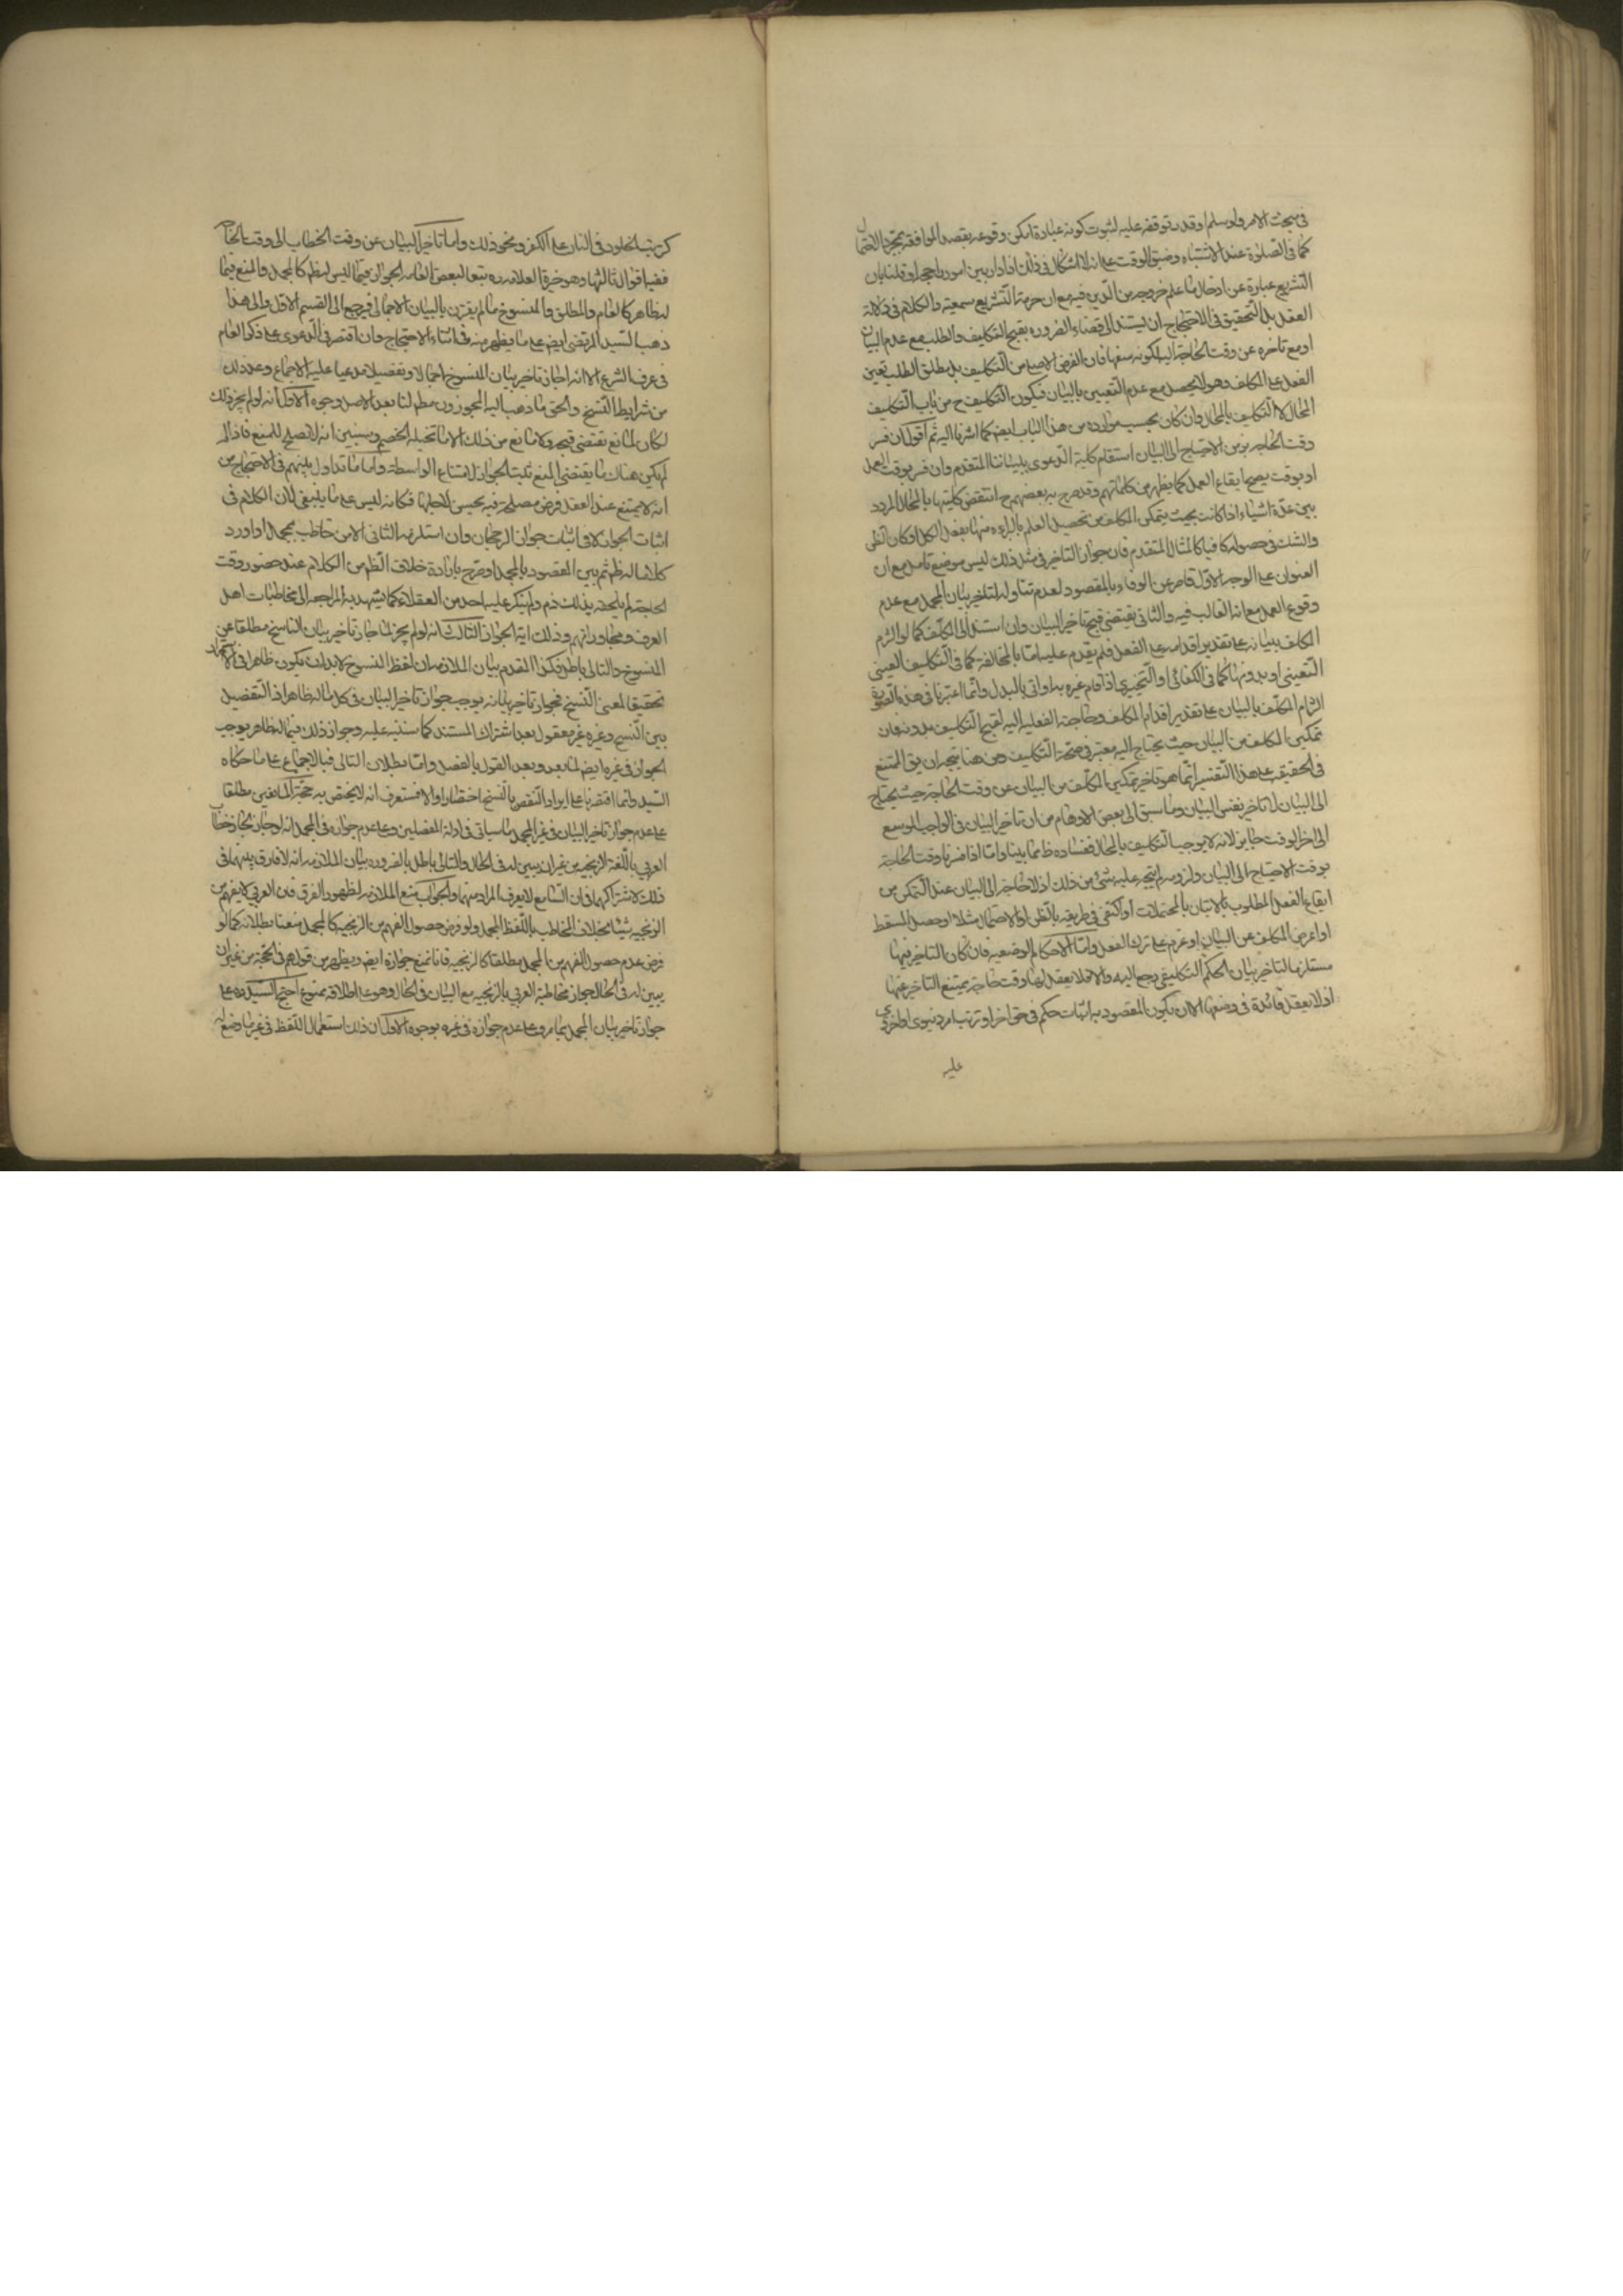 في مبحث الامر ولو سلم او قدر توقفه عليه لثبوت كونه عبادة امكن وقوعه بقصد الموافقة بمجرد الاحتمال
كما في الصلوة عند الاشتباه وضيق الوقت على انه لا اشكال في ذلك اذا دار بين امور واجبة او قلنا بان
التشريع عبارة عن ادخال ما علم خروجه من الدين فيه مع ان حرمة التشريع سمعية والكلام في دلالة
العقل بل التحقيق في الاحتجاج ان يستند الى قضاء الضرورة بقبح التكليف والطلب مع عدم البيان
او مع تاخره عن وقت الحاجة اليه لكونه سفها فان الغرض الاصلي من التكليف بل مطلق الطلب تعين
الفعل على المكلف وهو لا يحصل مع عدم التعيين بالبيان فيكون التكليف ح من باب التكليف
المحال لا التكليف بالمحال وان كان بحسب موارده من هذا الباب ايضا كما اشرنا اليه ثم اقول ان فسر
وقت الحاجة بزمن الاحتياج الى البيان استقام كلية الدعوى ببياننا المتقدم وان فسر بوقت العمل
او بوقت يصح ايقاع العمل كما يظهر من كلماتهم وقد صرح به بعضهم ح انتقض كليتها بالمجمل المردد
بين عدة اشياء اذا كانت بحيث يتمكن المكلف من تحصيل العلم بالبراءة منها بفعل الكل او كان الظن
والشك في حصوله كافيا كالمثال المتقدم فان جواز التاخير في مثل ذلك ليس موضع تامل مع ان
العنوان على الوجه الاول قاصر عن الوفاء بالمقصود لعدم تناوله لتاخير بيان المجمل مع عدم
وقوع العمل مع انه الغالب فيه والثاني يقتضي قبح تاخير البيان وان استند الى المكلف كما لو التزم
المكلف ببيانه على تقدير اقدامه على الفعل فلم يقدم عليه اما بالمخالفة كما في التكليف العيني
التعييني او بدونها كما في الكفائي او التخييري اذا قام غيره به او اتى بالبدل وانما اعتبرنا في هذه الصورة
الزام المكلف بالبيان على تقدير اقدام المكلف وحاجته الفعلية اليه لقبح التكليف بدونه فان
تمكين المكلف من البيان حيث يحتاج اليه معتبر في صحة التكليف ومن هنا يتجه ان يق الممتنع
في الحقيقة على هذا التفسير انما هو تاخير تمكين المكلف من البيان عن وقت الحاجة حيث يحتاج
الى البيان لا تاخير نفس البيان وما سبق الى بعض الاوهام من ان تاخير البيان في الواجب الموسع
الى اخر الوقت جايز لانه لا يوجب التكليف بالمحال ففساده ظ مما بينا واما اذا فسرنا وقت الحاجة
بوقت الاحتياج الى البيان ولزومه لم يتجه عليه شئ من ذلك اذ لا حاجة الى البيان عند التمكن من
ايقاع الفعل المطلوب بالاتيان بالمحتملات او اكتفي في طريقه بالظن او الاحتمال مثلا او حصل المسقط
او اعرض المكلف عن البيان او عزم على ترك الفعل واما الاحكام الوضعية فان كان التاخير فيها
مستلزما لتاخير بيان الحكم التكليفي رجع اليه والا فلا يعقل لها وقت حاجة يمتنع التاخير عنها
اذ لا يعقل فائدة في وضعها الا ان يكون المقصود به اثبات حكم في حق اخر او ترتب امر دنيوي او اخروي
عليه
كترتب الخلود في النار على الكفر ونحو ذلك واما تاخير البيان عن وقت الخطاب الى وقت الحاجة
ففيه اقوال ثالثها وهو خيرة العلامة ره تبعا لبعض العامة الجواز فيما ليس له ظ كالمجمل والمنع فيما
له ظاهر كالعام والمطلق والمنسوخ ما لم يقترن بالبيان الاجمالي فيرجع الى القسم الاول والى هذا
ذهب السيد المرتضى ايضا على ما يظهر منه في اثناء الاحتجاج وان اقتصر في الدعوى على ذكر العام
في عرف الشرع الا انه اجاز تاخير بيان المنسوخ اجمالا وتفصيلا مدعيا عليه الاجماع وعد ذلك
من شرايط النسخ والحق ما ذهب اليه المجوزون مط لنا بعد الاصل وجوه الاول انه لو لم يجز ذلك
لكان لمانع يقتضي قبحه ولا مانع من ذلك الا ما تخيله الخصم وسنبين انه لا يصلح للمنع فاذا لم
يكن هناك ما يقتضي المنع ثبت الجواز لامتناع الواسطة واما ما تداول بينهم في الاحتجاج من
انه لا يمتنع عند العقل فرض مصلحة فيه يحسن لاجلها فكانه ليس على ما ينبغي لان الكلام في
اثبات الجواز لا في اثبات جواز الرجحان وان استلزمه الثاني الا من خاطب بمجمل او اورد
كلاما له ظ ثم بين المقصود بالمجمل او صرح بارادة خلاف الظ من الكلام عند حضور وقت
الحاجة لم يلحقه بذلك ذم ولم ينكر عليه احد من العقلاء كما يشهد به المراجعة الى مخاطبات اهل
العرف ومحاوراتهم وذلك اية الجواز الثالث انه لو لم يجز لما جاز تاخير بيان الناسخ مطلقا عن
المنسوخ والتالي باطل فكذا المقدم بيان الملازمة ان لفظ المنسوخ لا بد ان يكون ظاهرا في الاستمرار
تحقيقا لمعنى النسخ فجواز تاخير بيانه يوجب جواز تاخير البيان في كل ما له ظاهر اذ التفصيل
بين النسخ وغيره غير معقول بعد اشتراك المستند كما سننبه عليه وجواز ذلك فيما له ظاهر يوجب
الجواز في غيره ايضا لما بعد وبعد القول بالفصل واما بطلان التالي فبالاجماع على ما حكاه
السيد وانما اقتصرنا على ايراد النقض بالنسخ اختصارا والا فستعرف انه لا يختص به حجة المانعين مطلقا
على عدم جواز تاخير البيان في غير المجمل ما سياتي في ادلة المفصلين وعلى عدم جوازه في المجمل انه لو جاز لجاز خطاب
العربي باللغة الزنجية من غير ان يبين له في الحال والتالي باطل بالضرورة بيان الملازمة انه لا فارق بينهما في
ذلك لاشتراكهما في ان السامع لا يعرف المراد منهما والجواب منع الملازمة لظهور الفرق فان العربي لا يفهم من
الزنجية شيئا بخلاف المخاطب باللفظ المجمل ولو فرض حصول الفهم من الزنجية كالمجمل منعنا بطلانه كما لو
فرض عدم حصول الفهم من المجمل مطلقا كالزنجية فانا نمنع جوازه ايضا ويظهر من قولهم في الحجة من غير ان
يبين له في الحال جواز مخاطبة العربي بالزنجية مع البيان في الحال وهو على اطلاقه ممنوع احتج السيد ره على
جواز تاخير بيان المجمل بما مر وعلى عدم جوازه في غيره بوجوه الاول ان ذلك استعمال اللفظ في غير ما وضع له